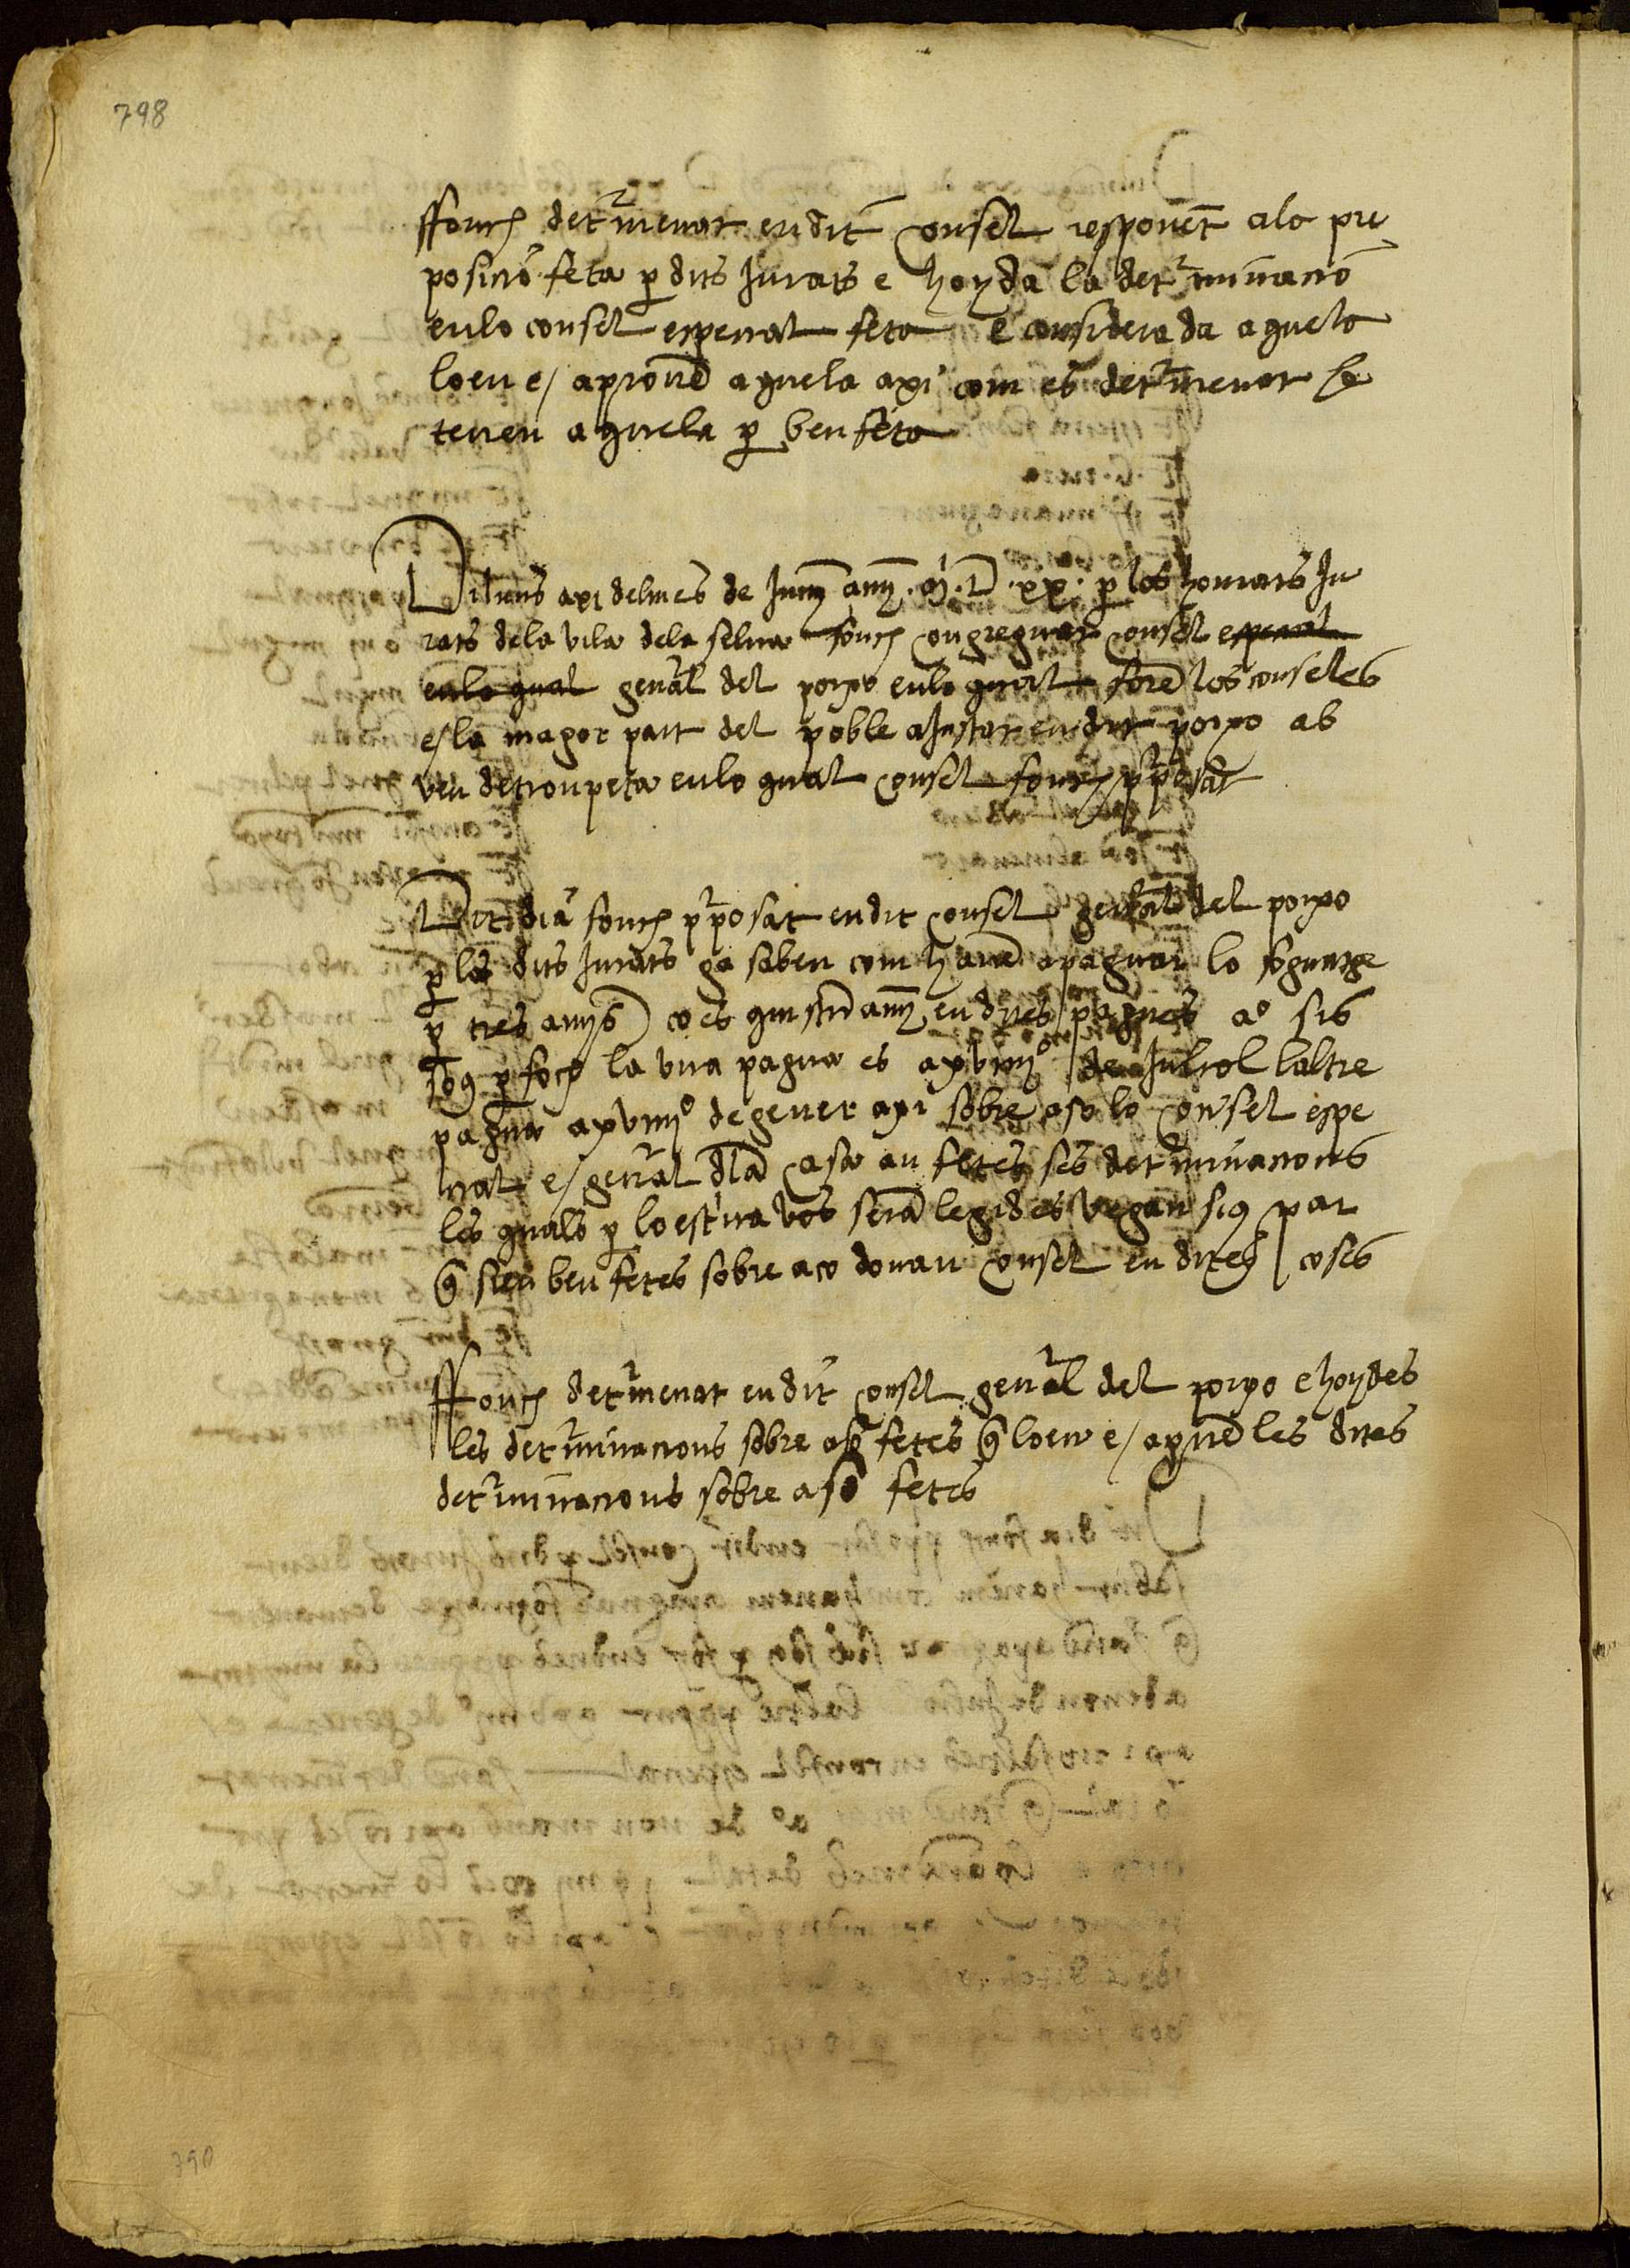 798
ffonch det'menat en dit consel responēt a la pre
posicio feta p dits Jurats e hoyda la det'minacio
en lo consel especial feta e considerada aquela
loen e/ aprovē aquela axi com es det'menat e
tenen aquela p ben feta
Diluns a xi del mes de Juny any .M.D.xx. p los honrats Ju
rats de la vila de la selva fonch congreguat consel especial
en lo qual gen'al del porxo en lo qual forē los conselés
e/ la magor part del poble aJustat en dit porxo ab
veu de trompeta en lo qual consel fonch p'posat
Dit dia fonch p'posat en dit consel general del porxo
p los dits Jurats ga saben com havē a paguar lo foguatge
p tres anys co es quiscū any en dues pagues a° sis
sos p foch la una pagua es a xviiij° de Juliol laltre
pagua a xviiij° de gener axi sobre aso lo consel espe
cial e/ gen'al dla casa an fetes ses det'minacions
les quals p lo escriva vos serā legides vegan si9 par
q sien ben fetes sobre aco donan consel en dites coses
ffonch det'menat en dit consel gen'al del porxo e hoydes
les det'minacions sobre aso fetes q loen e/ aprovē les dites
det'minacions sobre aso fetes
790